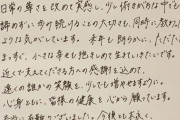 日常の尊さを改めて実感し、少し何かがあれば中でも
諦めずに歩き続けることの大切さを、同時に教わ
ような気がしています。来年も朗らかに、ただただ
まっすぐ、小さな幸せも抱きしめて生きていきたいです。
近くで支えてくださる方への感謝を込めて、
遠くの誰かの笑顔を、少しでも増やせますように。
心身ともに、皆様の健康を心から願っています。
今後とも末く